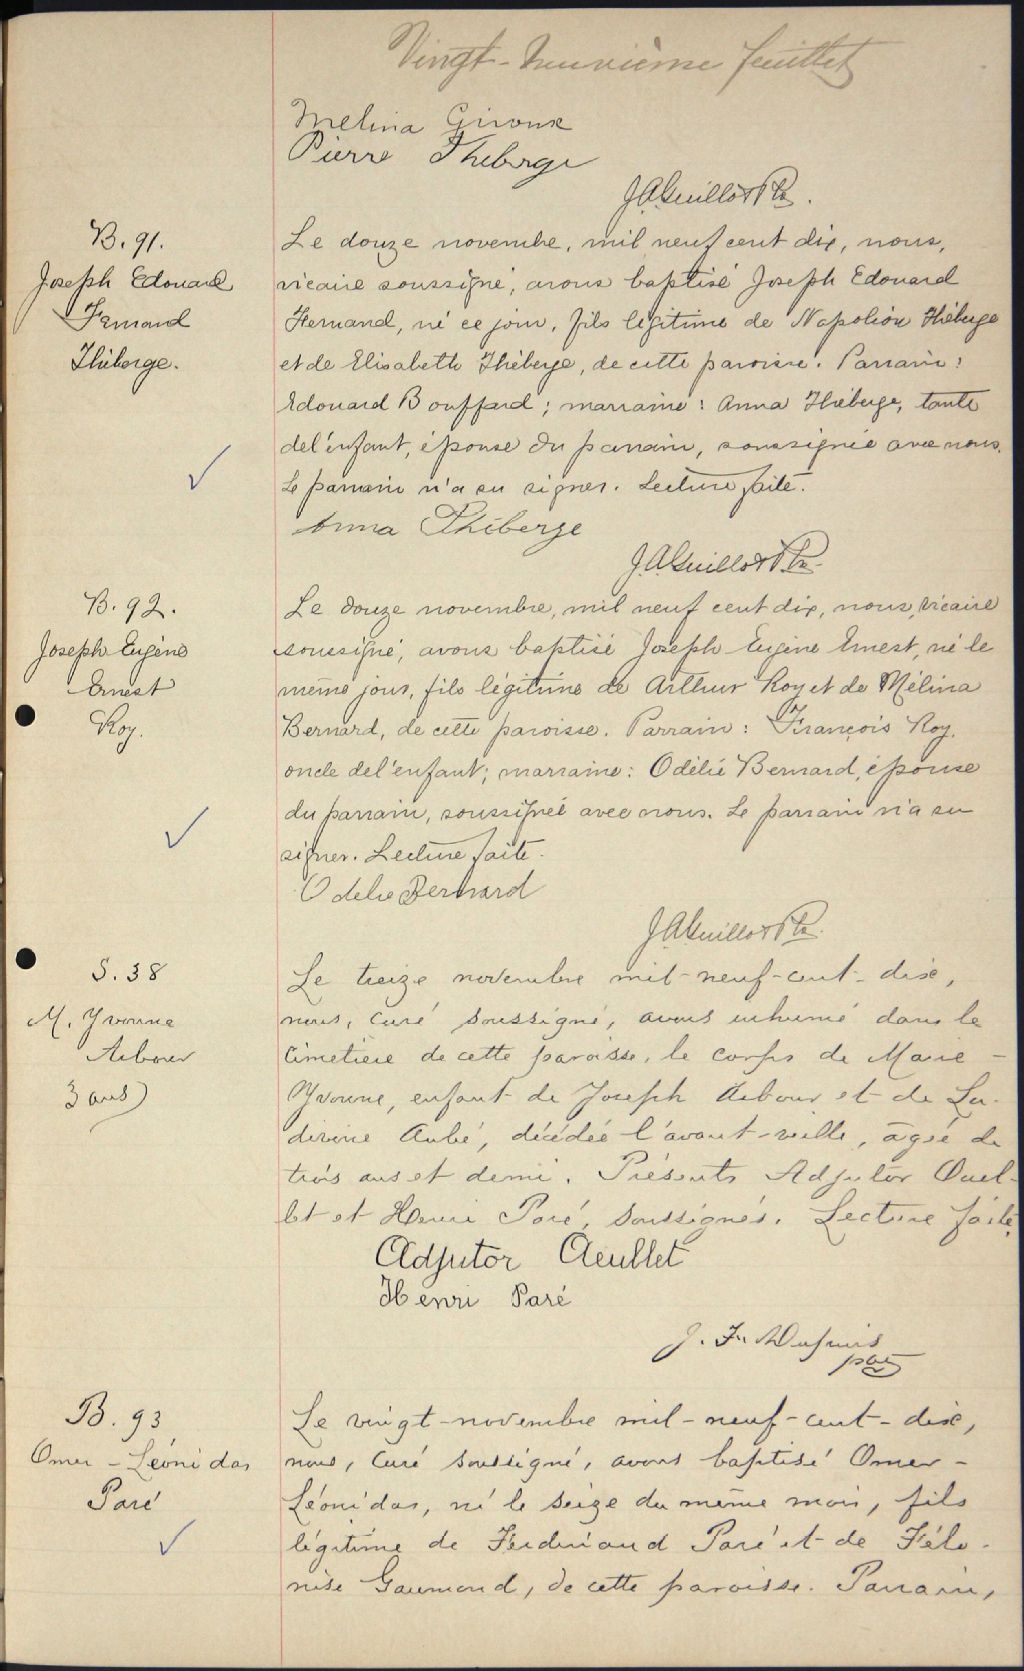 Vingt-neuvième feuillet
Melina Giroux
Pierre Theberge
J.A. Guillot Ptr.
B. 91.
Joseph Edouard
Fernand
Théberge.
Le douze novembre, mil neuf cent dix, nous,
vicaire soussigné, avons baptisé Joseph Edouard
Fernand, né ce jour, fils légitime de Napoléon Théberge
et de Elisabeth Théberge, de cette paroisse. Parrain:
Edouard Bouffard; marraine: Anna Théberge, tante
del'enfant, épouse du parrain, soussignée avec nous.
Le parrain n'a su signer. Lecture faite.
Anna Théberge
J.A. Guillot Ptr.
B. 92.
Joseph Eugène
Ernest
Roy.
Le douze novembre, mil neuf cent dix, nous, vicaire
soussigné, avons baptisé Joseph Eugène Ernest, né le
même jour, fils légitime de Arthur Roy et de Mélina
Bernard, de cette paroisse. Parrain: François Roy,
oncle del'enfant; marraine: Odélie Bernard, épouse
du parrain, soussignée avec nous. Le parrain n'a su
signer. Lecture faite.
Odelie Bernard
J.A. Guillot Ptr.
S. 38
M. Yvonne
Arbour
3 ans)
Le treize novembre mil-neuf-cent-dix,
nous, curé soussigné, avons inhumé dans le
cimetière de cette paroisse, le corps de Marie-
Yvonne, enfant de Joseph Arbour et de Lu-
divine Aubé, décédée l'avant-veille, âgée de
trois ans et demi. Présents Adjutor Ouel-
let et Henri Paré, soussignés. Lecture faite.
Adjutor Aeullet
Henri Paré
J. F. Dupuis
ptre
B. 93
Omer-Léonidas
Paré
Le vingt-novembre mil-neuf-cent-dix,
nous, curé soussigné, avons baptisé Omer-
Léonidas, né le seize du même mois, fils
légitime de Ferdinand Paré et de Félo-
nise Gaumond, de cette paroisse. Parrain,